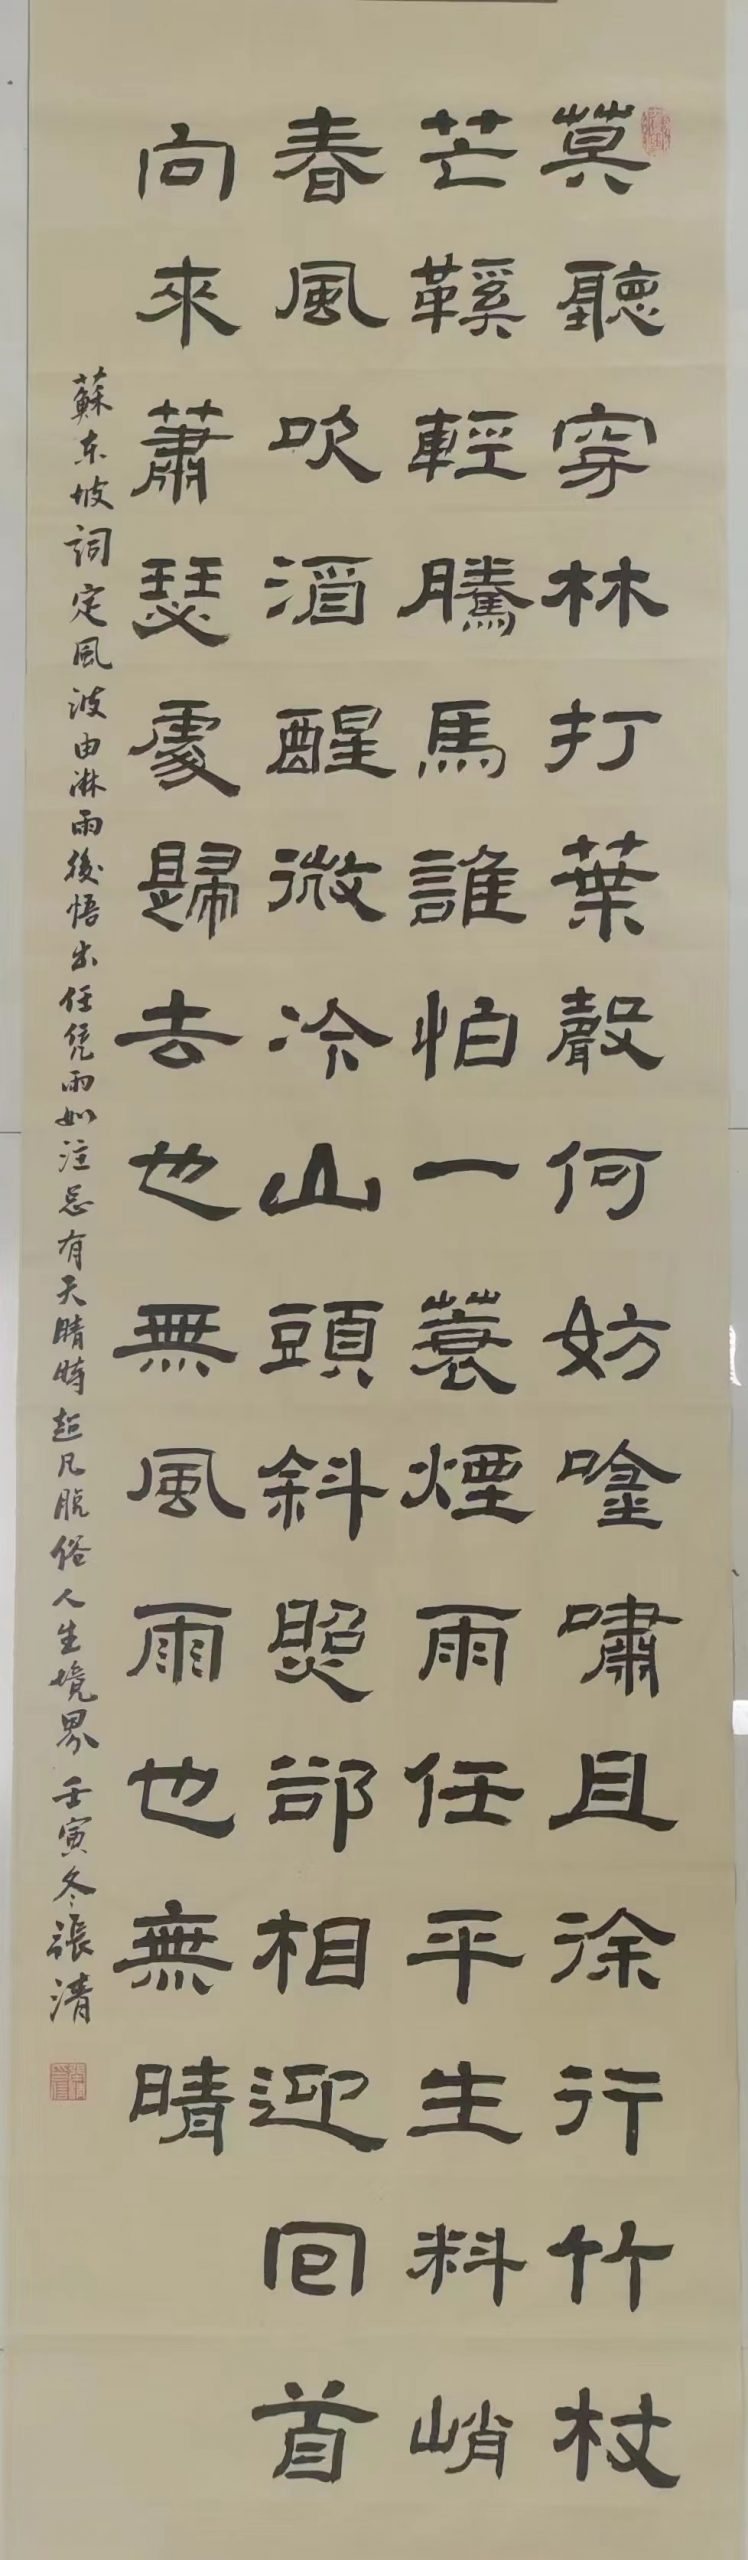 莫聽穿林打葉聲何妨唫嘯且徐行竹杖
芒鞵輕騰馬誰怕一蓑煙雨任平生料峭
春風吹酒醒微冷山頭斜照卻相迎回首
向來蕭瑟處歸去也無風雨也無晴
蘇东坡詞定風波由淋雨後悟出任凭雨如注总有天晴時超凡脫俗人生境界壬寅冬張清